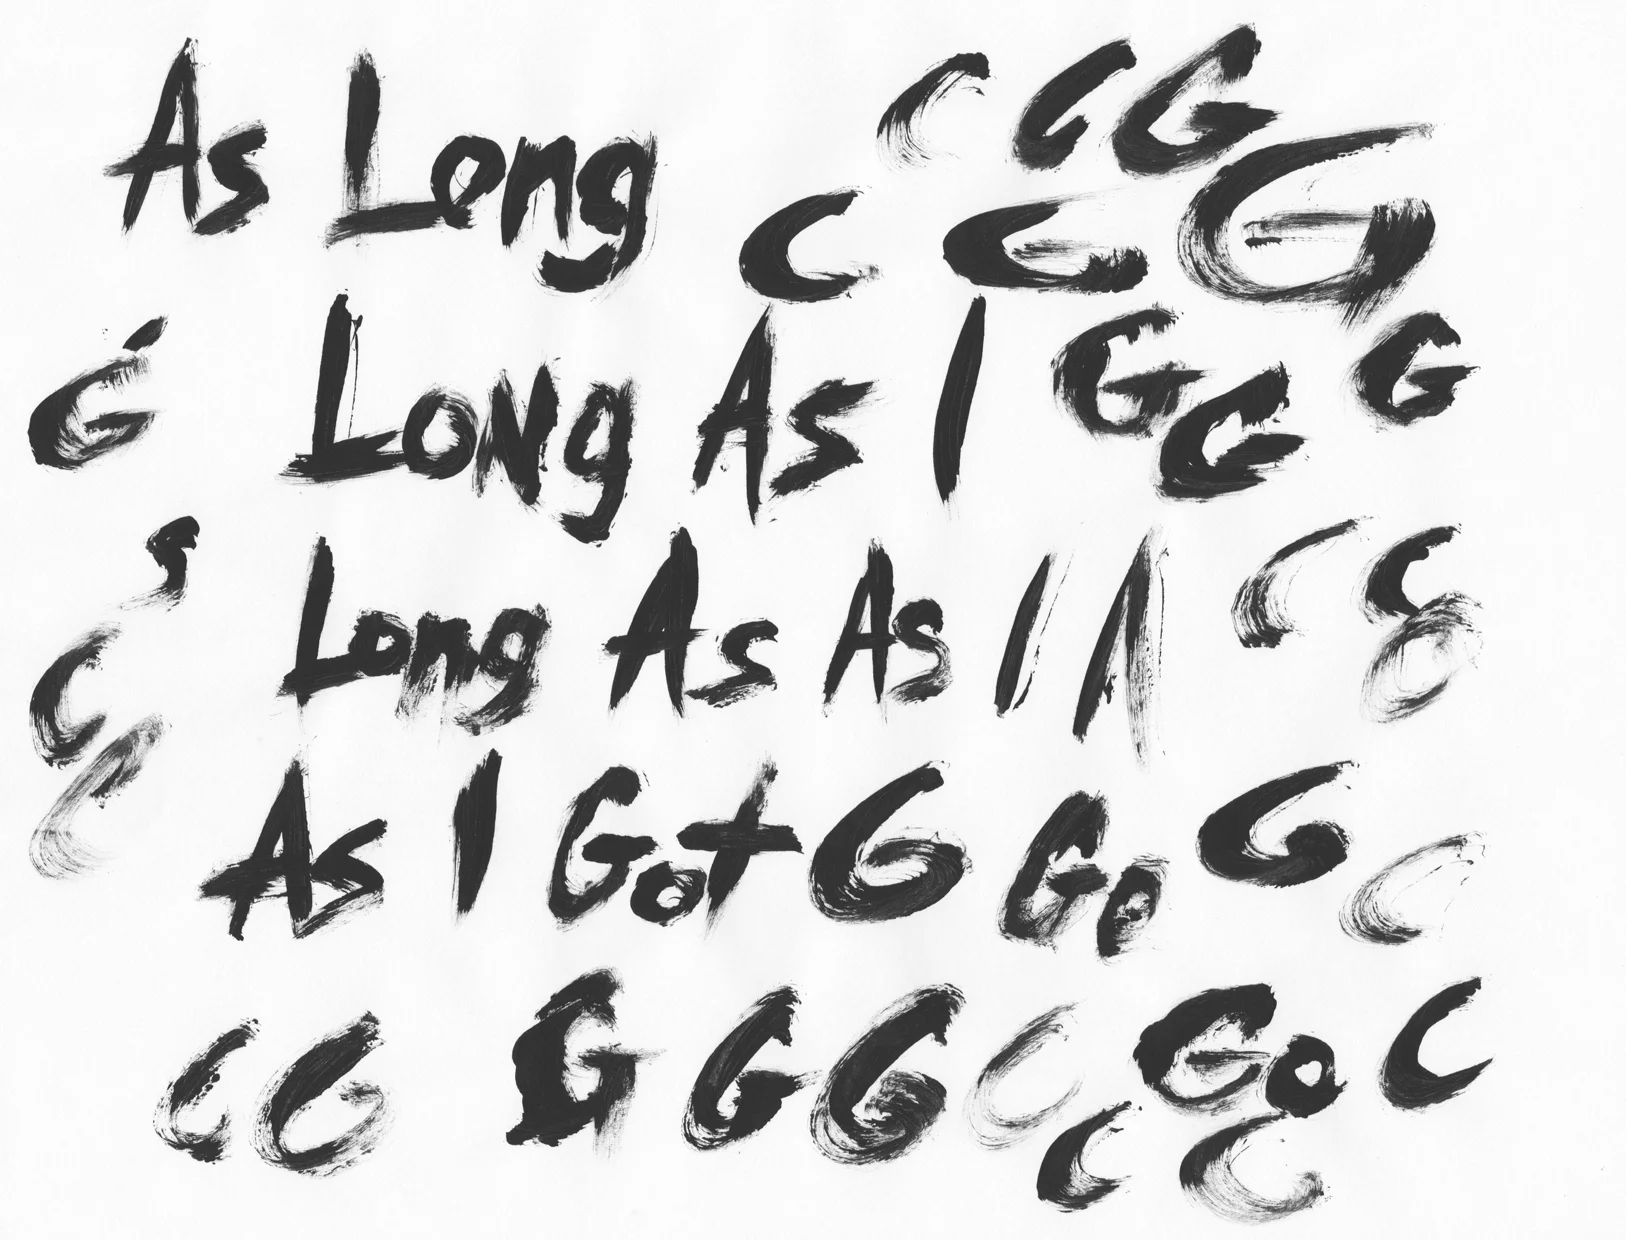 As Long C C G
C G G
G Long As I G G G
s Long As As I I I C C
C As I Got G Go G C
C G G G G C Go C
C C